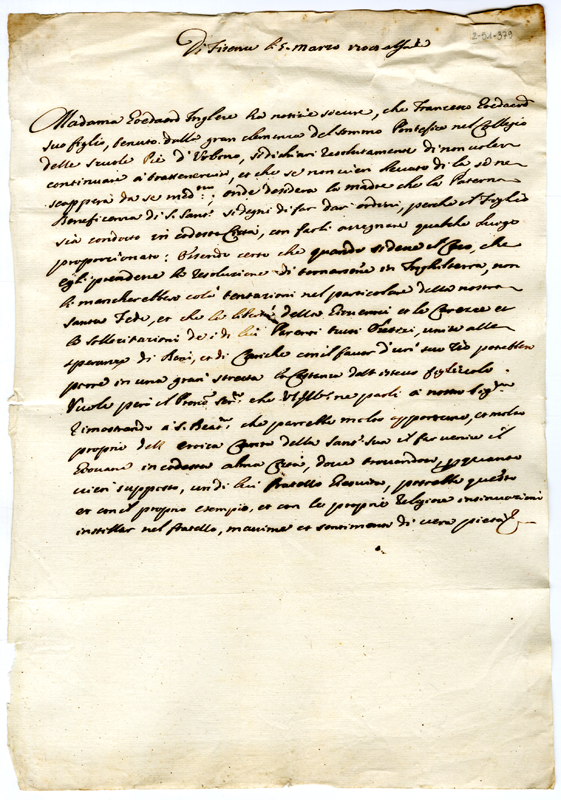 2-54-379
Di Firenze li 5. Marzo
Madama Eoedaord Inglese ha notizie sicure, che Francesco Eoedaord
suo figlio, tenuto dalla gran clemenza del sommo Pontefice nel Collegio
delle scuole Pie d'Urbino, si dichiari resolutamente di non voler
continuare à trattenervisi, et che se non vien levato di là se ne
scapperà da se med.mo; onde desidera la madre che la Paterna
Beneficenza di S. Sant.à si degni di far dar ordini, perche il Figlio
sia condotto in codesta Città, con farli assegnare qualche luogo
proporzionato; Essendo certo che quando si desse il Caso, che
egli prendesse la resoluzione di tornarsene in Inghilterra, non
li mancherebbero colà tentazioni nel particolare della nostra
Santa Fede, et che la libertà della Gioventù et le Carezze et
le sollecitazioni de i di lui Parenti tutti Eretici, unite alle
speranze di Beni, et di Cariche con il favor d'un suo Zio potrebbero
porre in una gran stretta la Costanza dell'istesso figliuolo.
Vuole però il che V.S. Ill.ma ne parli à nostro Sig.re
rimostrando à S. Beat.ne che parrebbe molto opportuno, et molto
proprio dell'eroica Carità della Sant.à Sua il far venire il
Giovane in codesta alma Città, dove trovandosi, per quanto
vien supposto, un di lui Fratello Gesuita, potrebbe questo
et con il proprio esempio, et con le proprie religiose insinuazioni
instillar nel fratello, massime et sentimenti di vera pietà